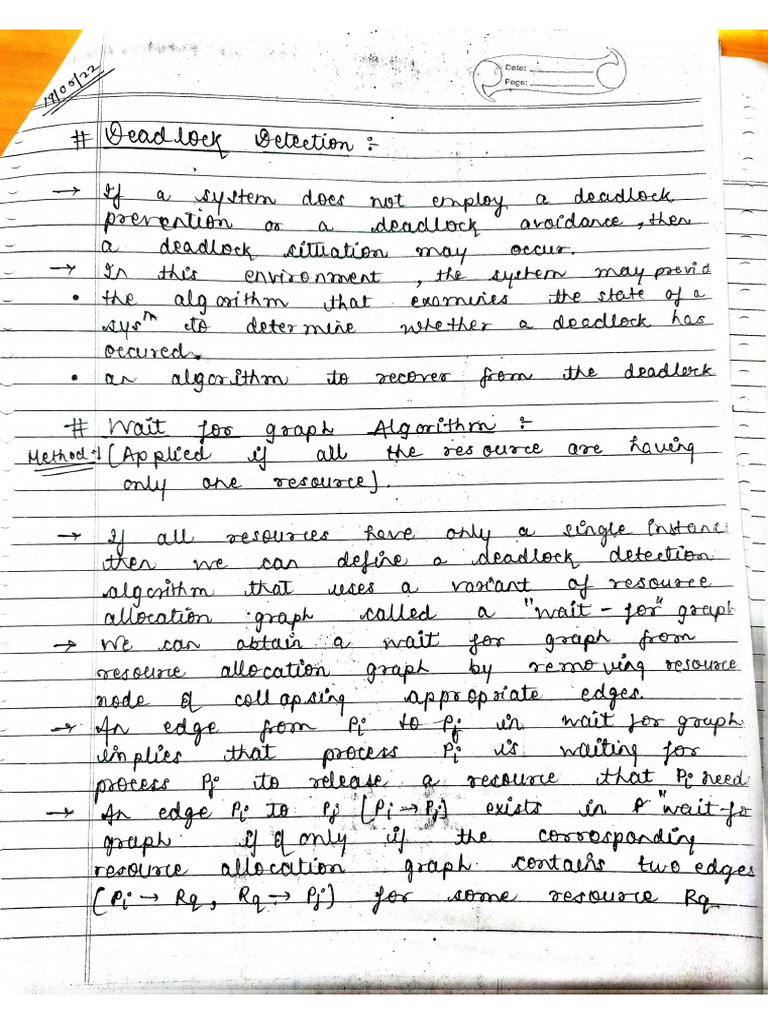 19/05/22
Date:
Page:
# Deadlock Detection :-
→ If a system does not employ a deadlock
prevention or a deadlock avoidance, then
a deadlock situation may occur.
→ In this environment, the system may previd
• the algorithm that examines the state of a
sysᵐ to determine whether a deadlock has
occured.
• an algorithm to recover from the deadlock
# Wait for graph Algorithm :-
Method :- [Applied if all the resource are having
only one resource].
→ If all resources have only a single instanc
then we can define a deadlock detection
algorithm that uses a variant of resource
allocation graph called a "wait - for" graph
→ We can obtain a wait for graph from
resource allocation graph by removing resource
node & collapsing appropriate edges.
→ An edge from Pi to Pj in wait for graph
implies that process Pi is waiting for
process Pj to release a resource that Pi need
→ An edge Pi to Pj (Pi → Pj) exists in "wait-fo
graph if & only if the corresponding
resource allocation graph contains two edges
(Pi → Rq, Rq → Pj) for some resource Rq